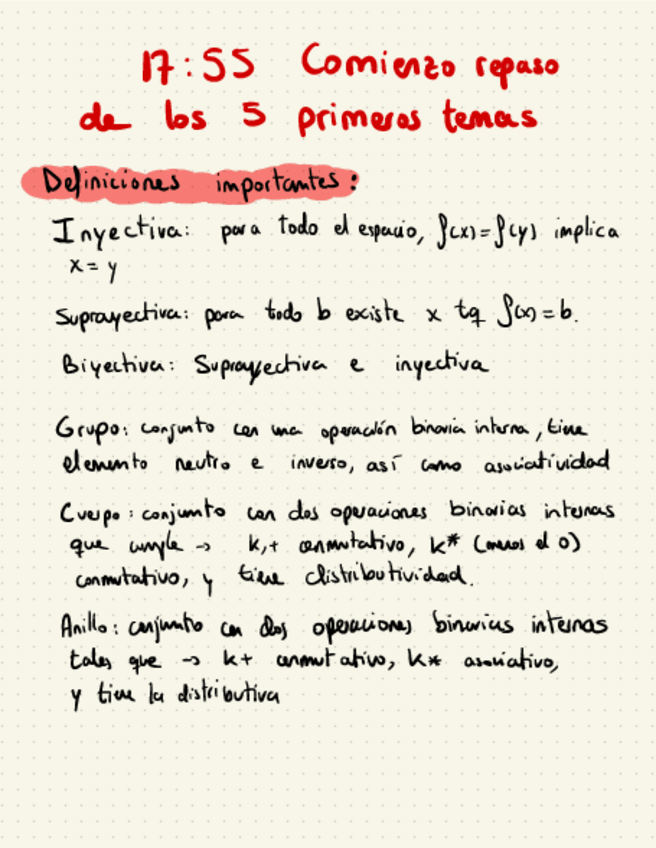 17:55 Comienzo repaso
de los 5 primeros temas
Definiciones importantes:
Inyectiva: para todo el espacio, f(x)=f(y) implica
x = y
Suprayectiva: para todo b existe x tq f(x) = b.
Biyectiva: Suprayectiva e inyectiva
Grupo: conjunto con una operación binaria interna, tiene
elemento neutro e inverso, así como asociatividad
Cuerpo: conjunto con dos operaciones binarias internas
que cumple → k,+ conmutativo, k* (menos el 0)
conmutativo, y tiene distributividad.
Anillo: conjunto con dos operaciones binarias internas
tales que → k+ conmutativo, k* asociativo,
y tiene la distributiva